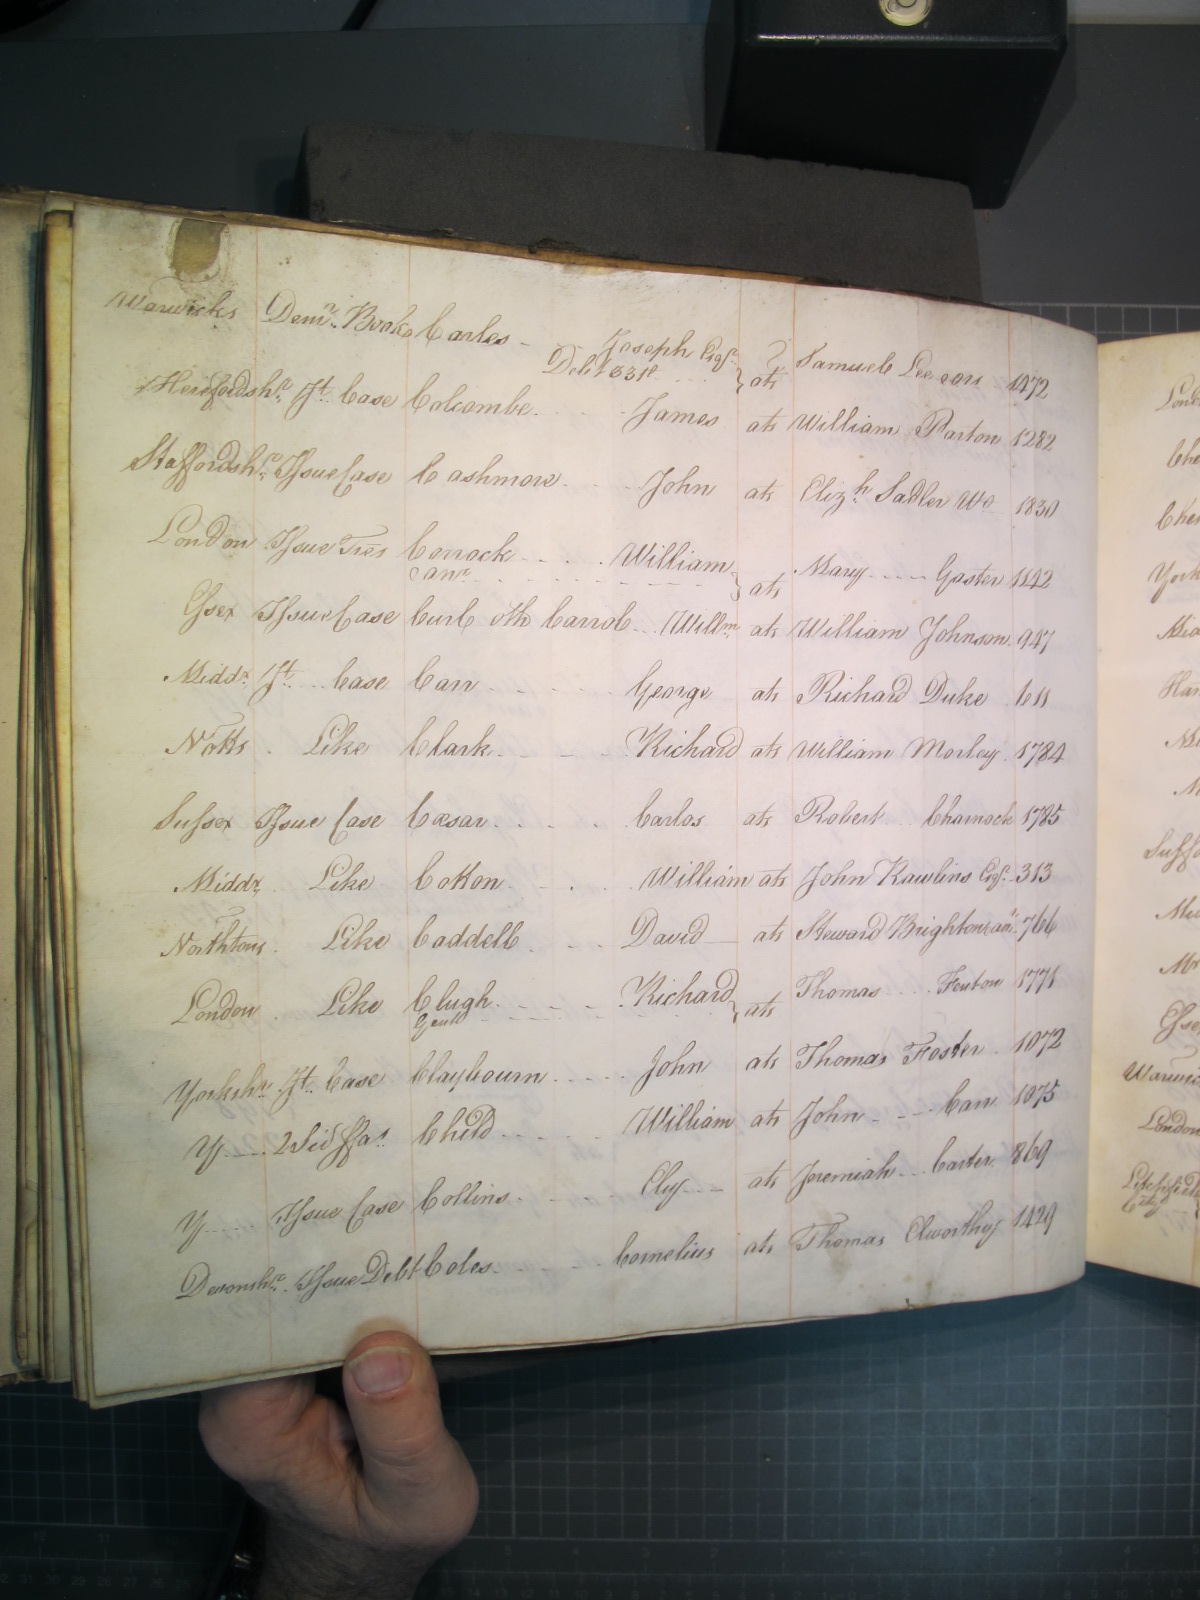 Warwicks Demr. Book Carles - Joseph Esqr. } ats Samuel Leeson 1472
Debt 831£
Herefordshr. Jt. Case Colcombe James ats William Parton 1282
Staffordshr. Issue Case Cashmore John ats Elizh Sadler Wo 1830
London Issue Tres Corrock William } ats Mary Gaster 1142
Essex Issue Case Curl oth Carrol Willm ats William Johnson 947
Middx. Jt. Case Carr George ats Richard Duke 611
Notts. Like Clark Richard ats William Morley 1784
Sussex Issue Case Cæsar Carlos ats Robert Charnock 1785
Middx. Like Cotton William ats John Rawlins Esqr. 313
Northtons. Like Caddell David ats Steward Brighton 766
London Like Clugh Richard } ats Thomas Fenton 1771
Gentl
Yorkshr. Jt. Case Claybourn John ats Thomas Foster 1072
Y 2 Sid ffas Child William ats John Carr 1075
Y Issue Case Collins Cly ats Jeremiah Carter 869
Devonshr. Issue Debt Coles Cornelius ats Thomas Elworthy 1429
London
Essex
Warwic
London
Litchfield
City